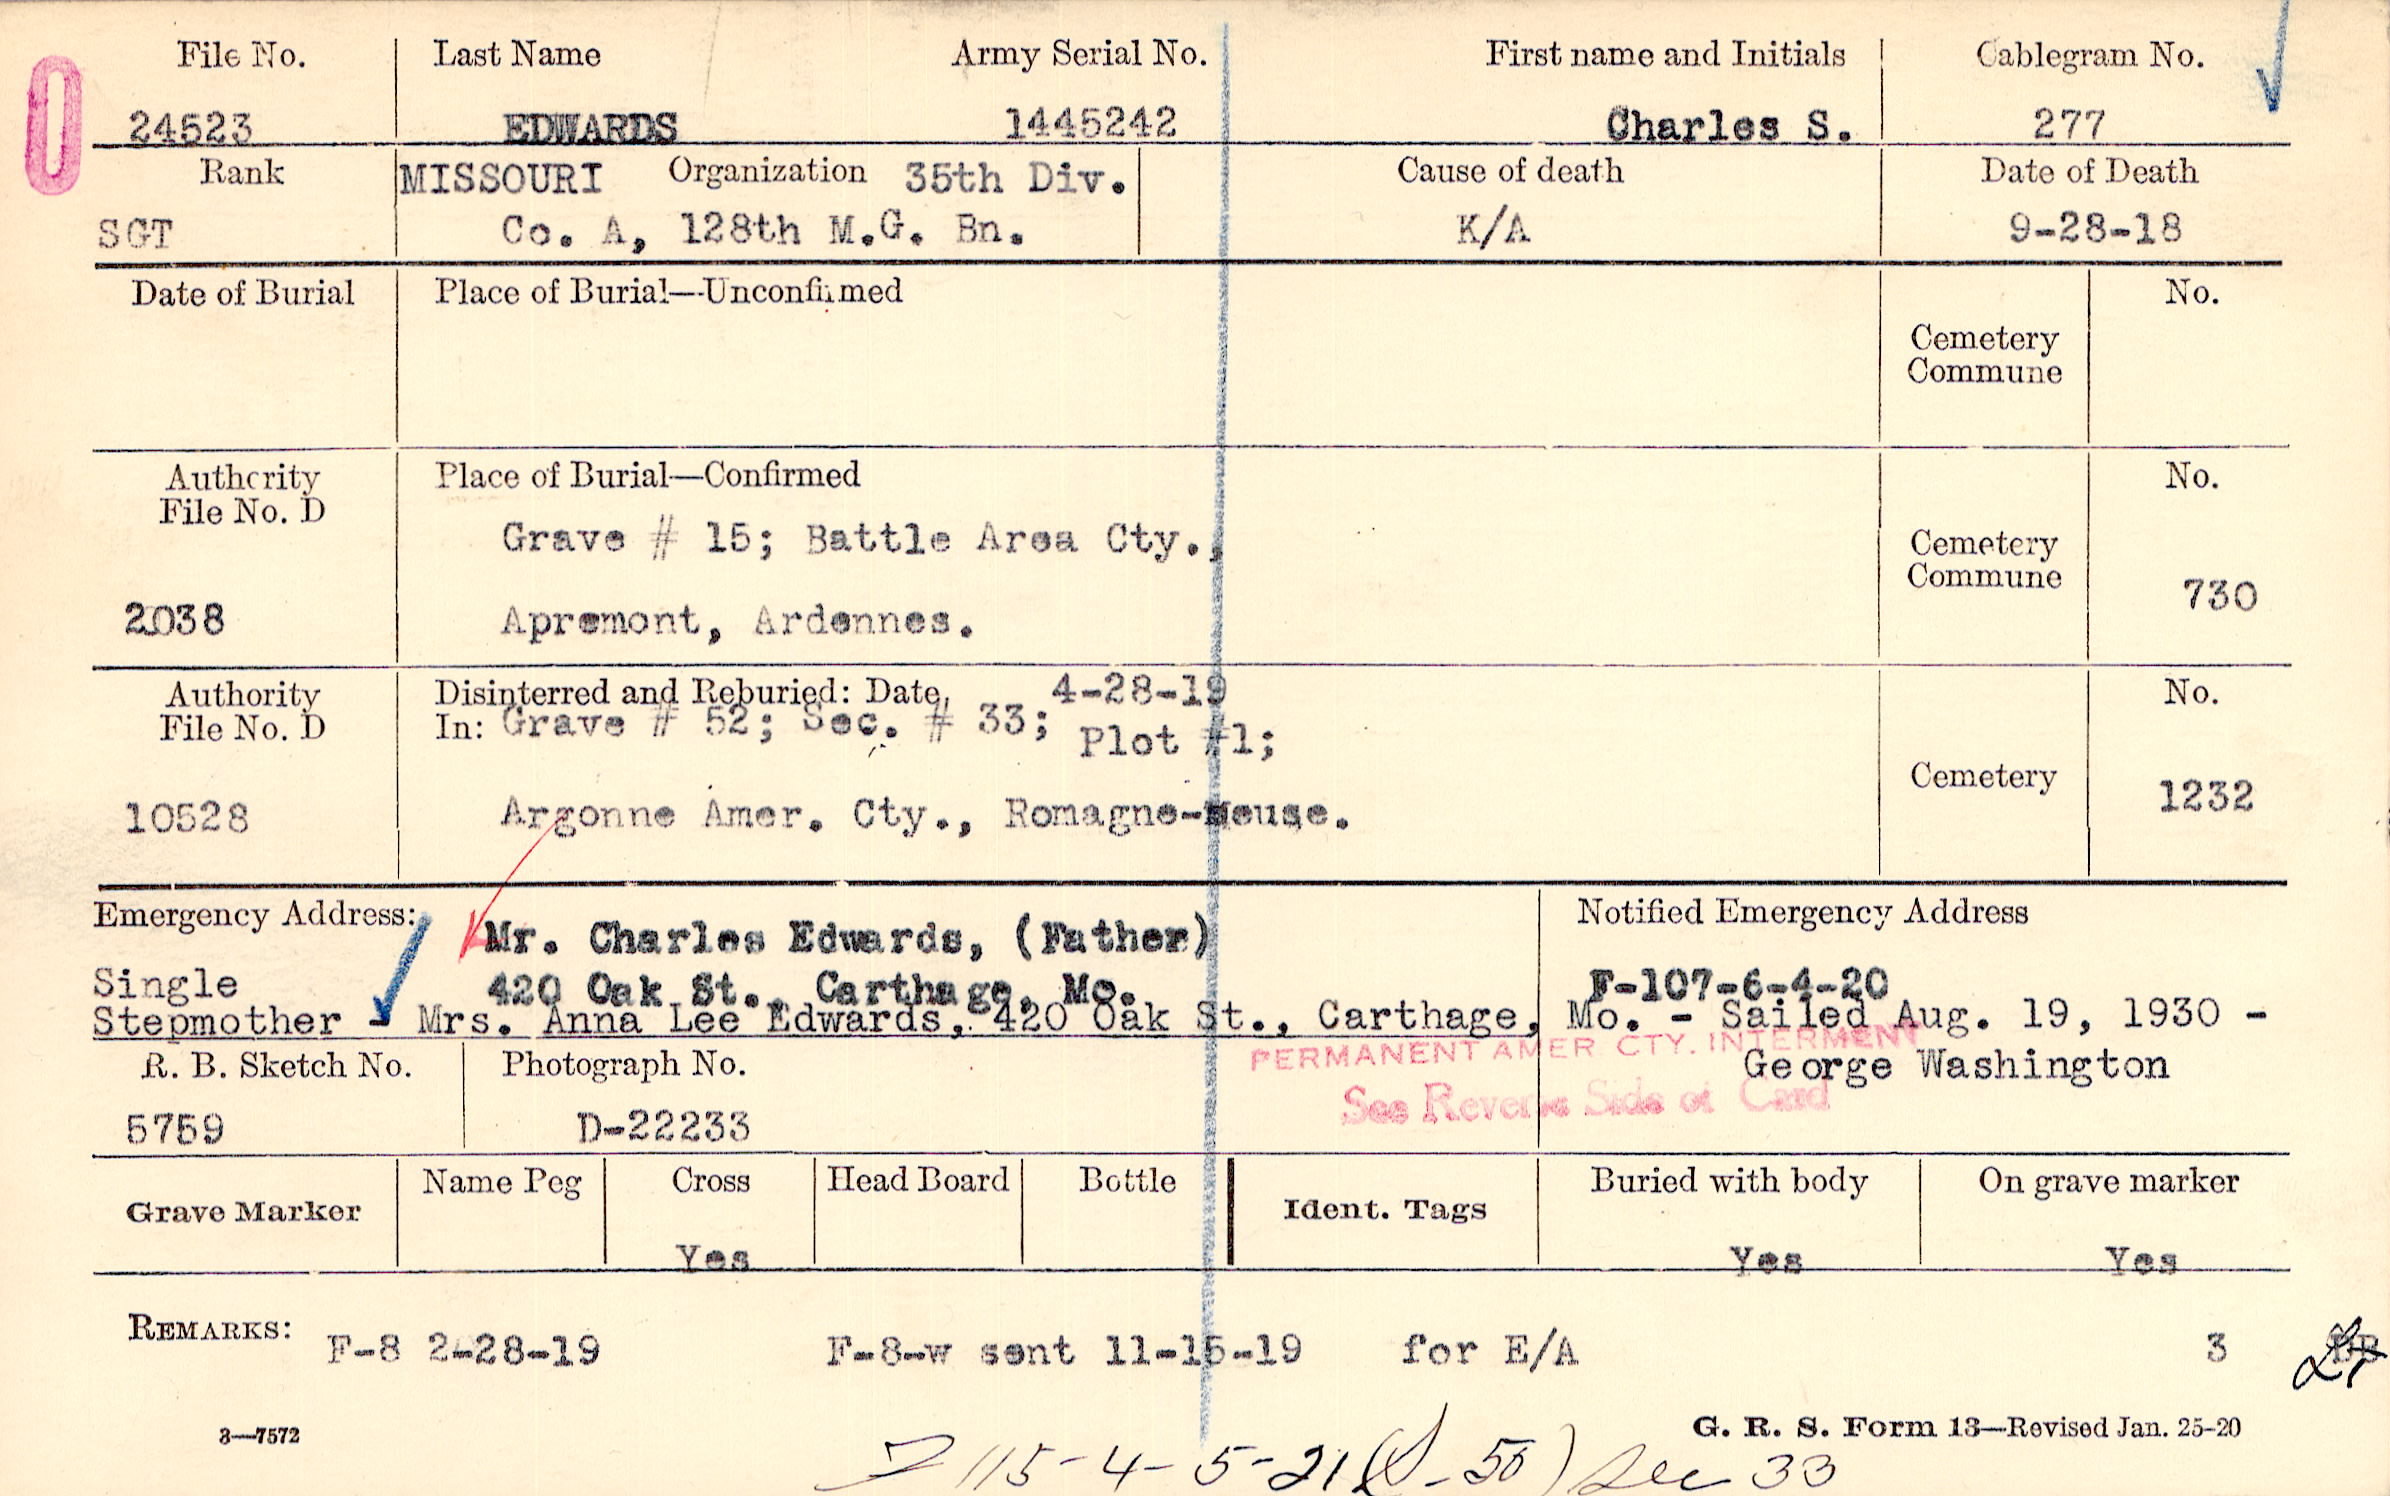 File No. Last Name Army Serial No. First name and Initials Cablegram No.
24523 EDWARDS 1445242 Charles S. 277
Rank MISSOURI Organization 35th Div. Cause of death Date of Death
SGT Co. A, 128th M.G. Bn. K/A 9-28-18
Date of Burial Place of Burial—Unconfirmed No.
Cemetery
Commune
Authority Place of Burial—Confirmed No.
File No. D
Grave # 15; Battle Area Cty., Cemetery
Commune 730
2038 Apremont, Ardennes.
Authority Disinterred and Reburied: Date, 4-28-19 No.
File No. D In: Grave # 52; Sec. # 33; Plot #1;
Cemetery 1232
10528 Argonne Amer. Cty., Romagne-Meuse.
Emergency Address: Mr. Charles Edwards, (Father) Notified Emergency Address
Single 420 Oak St., Carthage, Mo. F-107-6-4-20
Stepmother - Mrs. Anna Lee Edwards, 420 Oak St., Carthage, Mo. - Sailed Aug. 19, 1930 -
PERMANENT AMER CTY. INTERMENT
R. B. Sketch No. Photograph No. George Washington
See Reverse Side of Card
5759 D-22233
Grave Marker Name Peg Cross Head Board Bottle Ident. Tags Buried with body On grave marker
Yes Yes Yes
REMARKS: F-8 2-28-19 F-8-w sent 11-15-19 for E/A 3
3—7572 G. R. S. Form 13—Revised Jan. 25-20
115-4-5-21 Sec 33